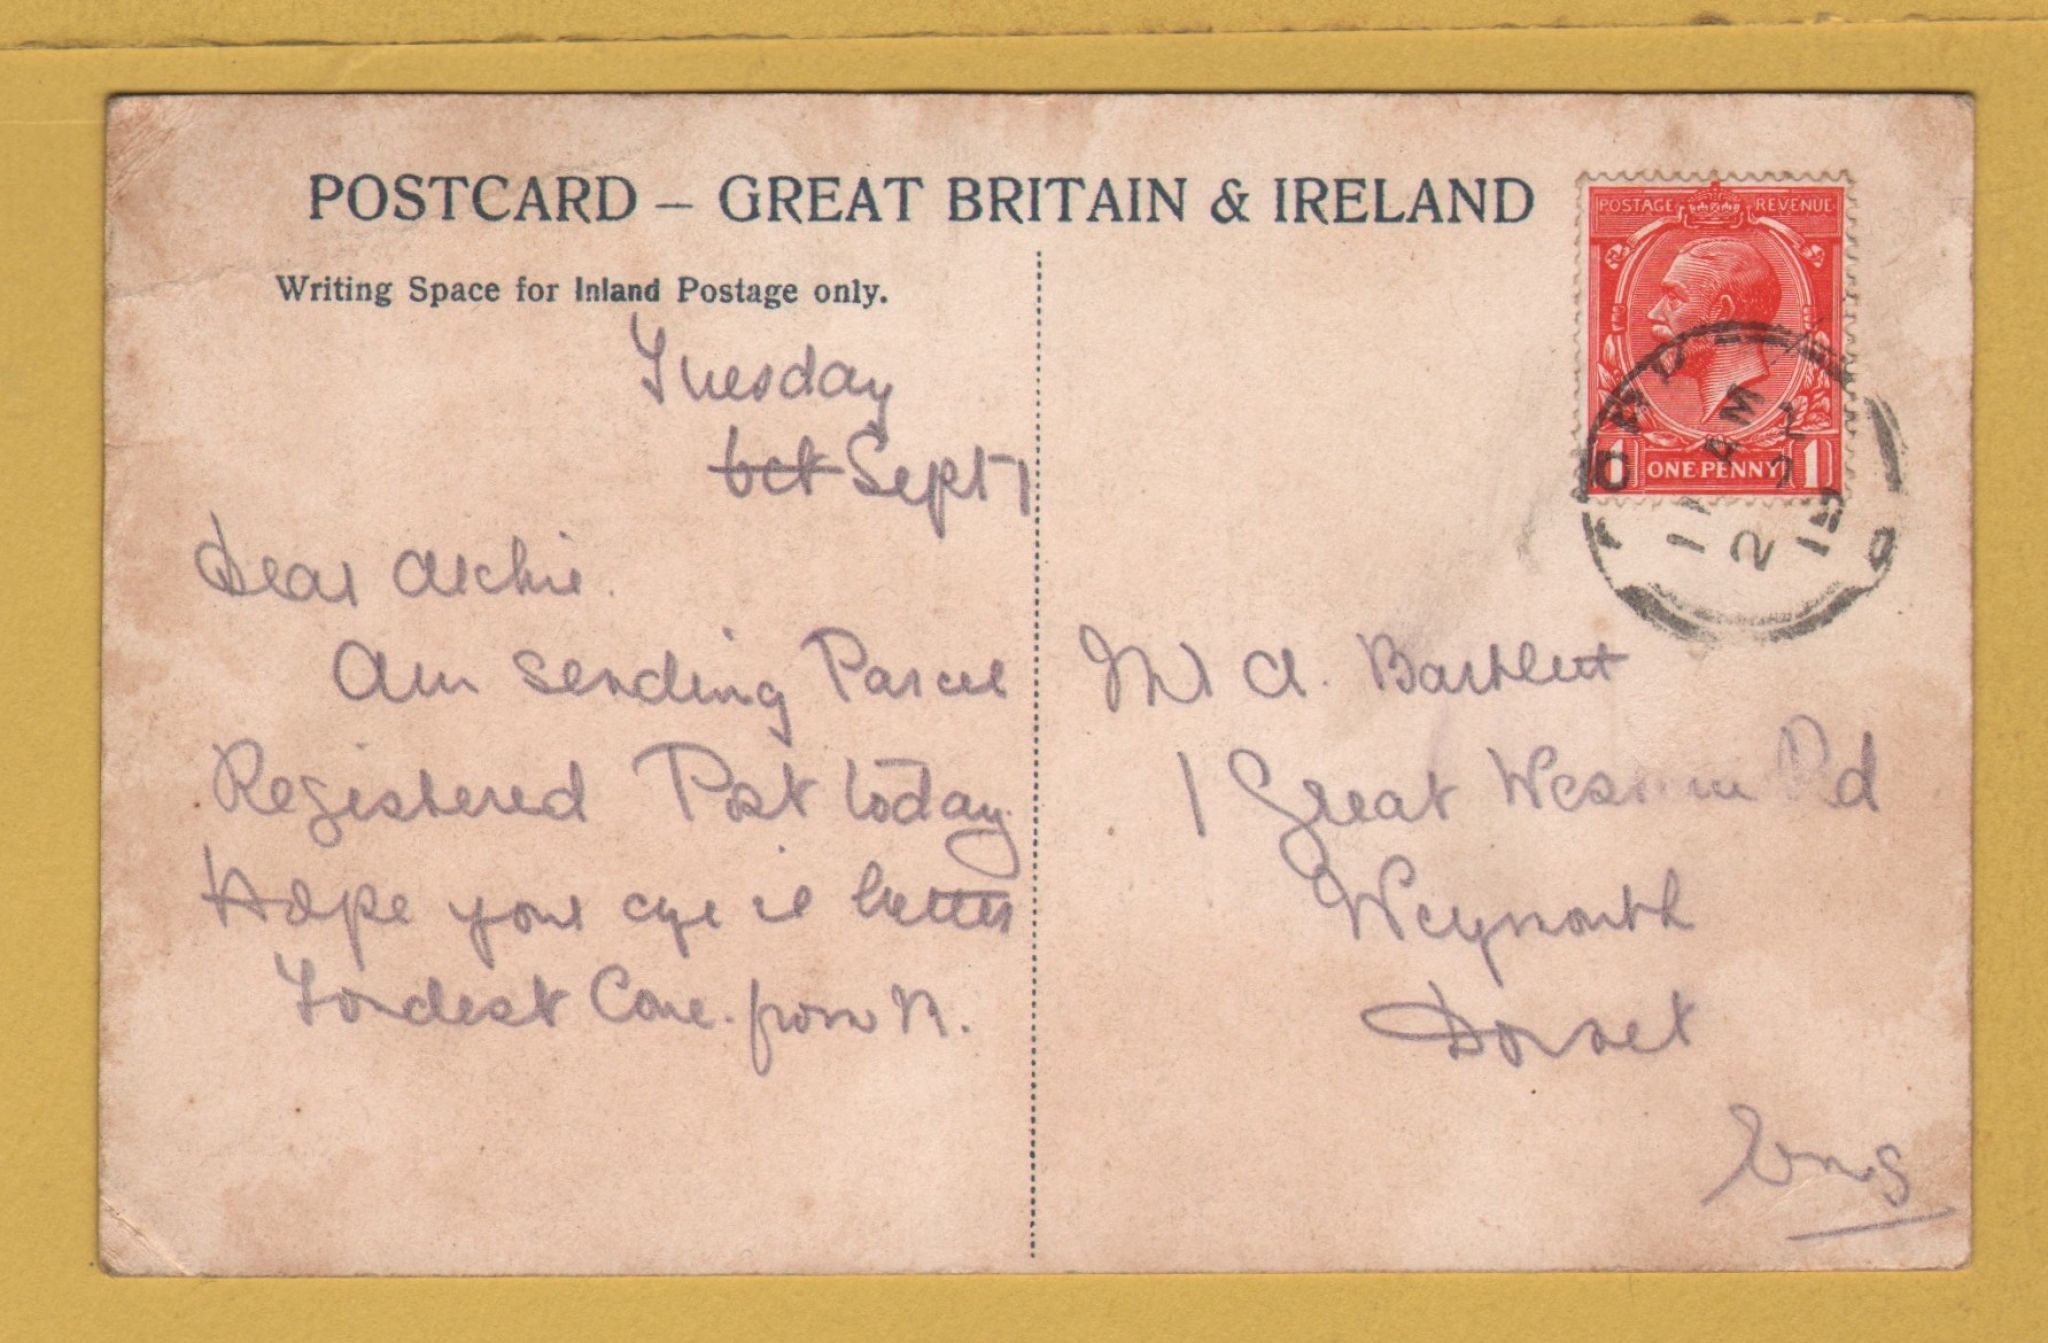 POSTCARD – GREAT BRITAIN & IRELAND
Writing Space for Inland Postage only.
Tuesday
Oct Sept 1
Dear Archie.
Am sending Parcel
Registered Post today
Hope your eye is better
Fondest Love. from N.
POSTAGE REVENUE
1 ONE PENNY 1
11 AM
2
15
Mr A. Bartlett
1 Great Western Rd
Weymouth
Dorset
Eng